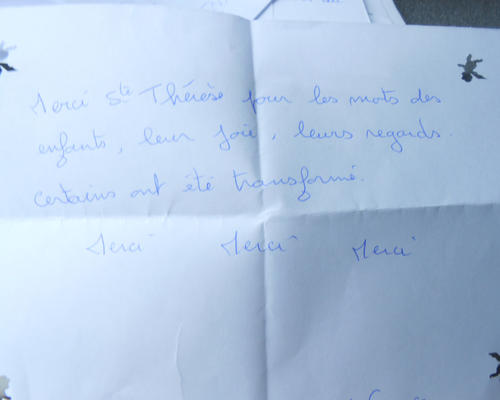 Merci Ste Thérèse pour les mots des
enfants, leur joie, leurs regards.
Certains ont été transformé.
Merci Merci Merci